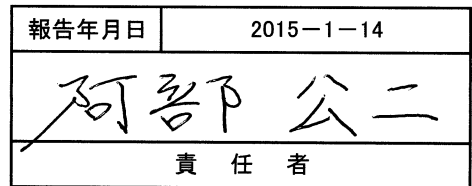 報告年月日 2015－1－14
阿部 公二
責 任 者